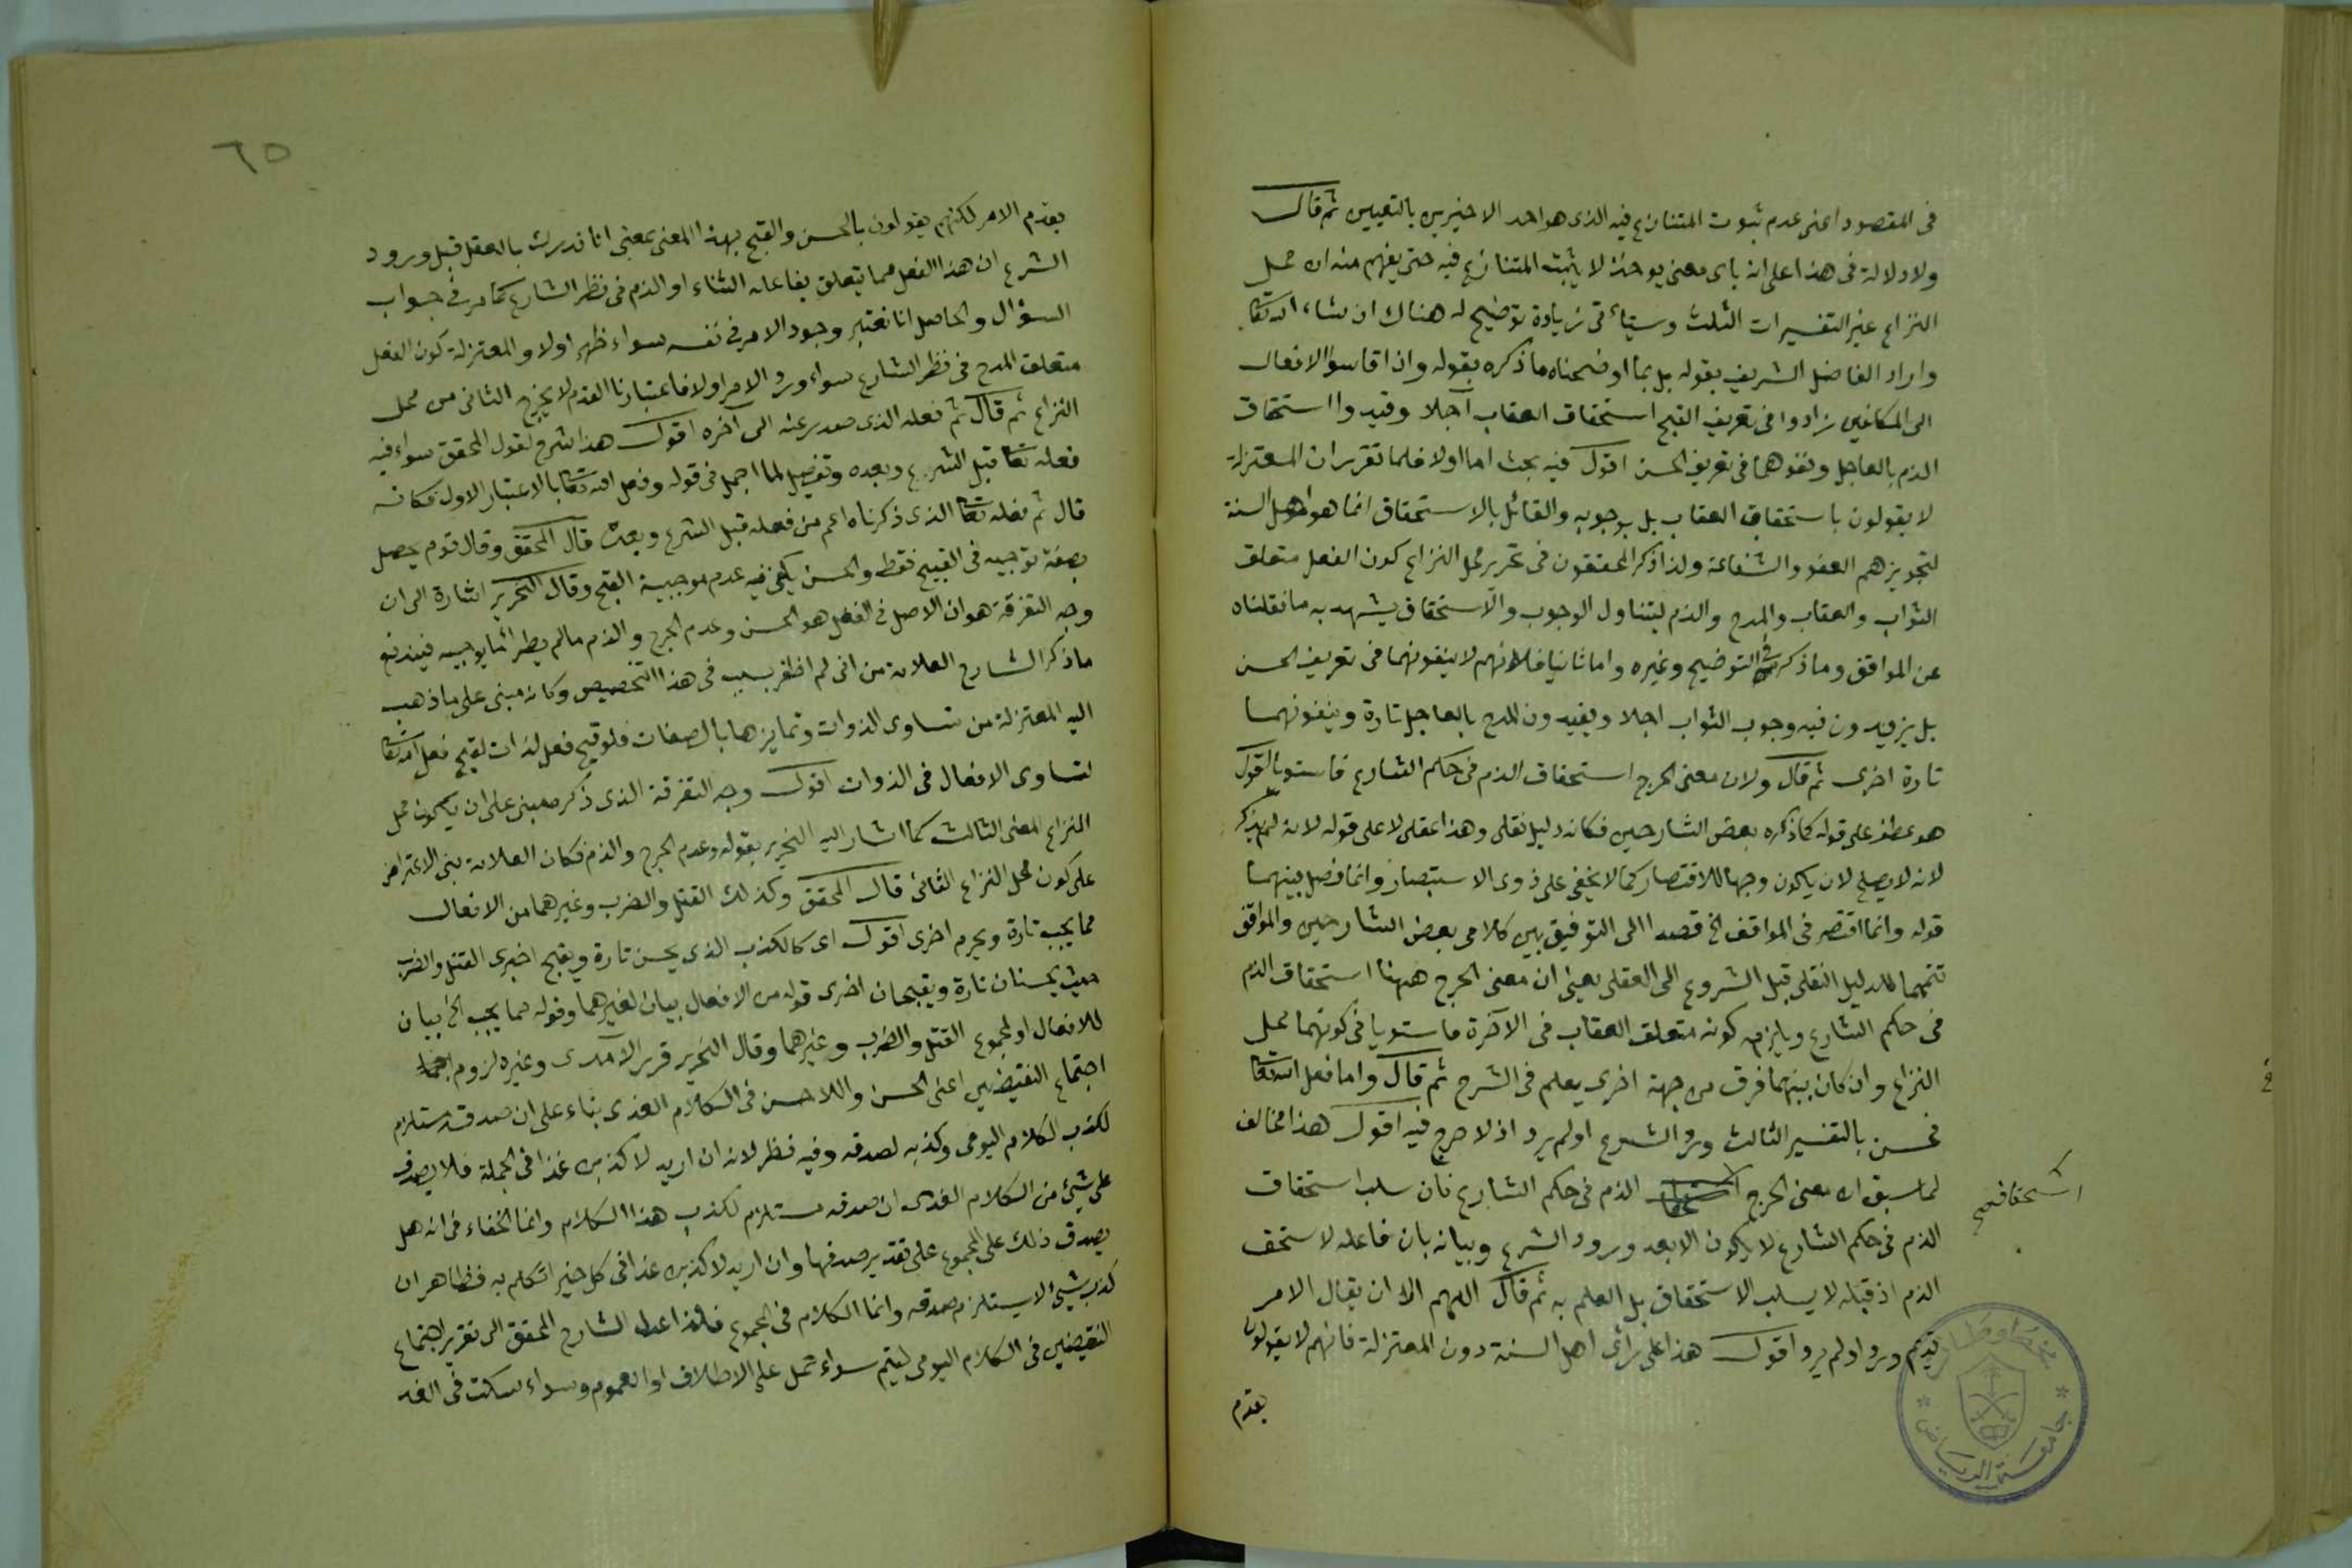 في المقصود اعنى عدم ثبوت المتنازع فيه الذى هو احد الاخيرين بالتعيين ثم قال
ولا دلالة فى هذا على انه باى معنى يوخذ لا يثبت المتنازع فيه حتى يفهم منه ان محل
النزاع غير التفسيرات الثلث وسيأتى زيادة توضيح له هناك ان شاء الله تعا
واراد الفاضل الشريف بقوله بل بما اوضحناه ما ذكره بقوله واذا قاسوا الافعال
الى المكلفين زادوا فى تعريف القبح استحقاق العقاب آجلا وقيدوا استحقاق
الذم بالعاجل ونفوهما فى تعريف الحسن اقول فيه بحث اما اولا فلما تقرر ان المعتزلة
لا يقولون باستحقاق العقاب بل بوجوبه والقائل بالاستحقاق انما هو اهل السنة
لتجويزهم العفو والشفاعة ولذا ذكر المحققون فى تحرير محل النزاع كون الفعل متعلق
الثواب والعقاب والمدح والذم ليتناول الوجوب والاستحقاق يشهد به ما نقلناه
عن المواقف وما ذكر فى التوضيح وغيره واما ثانيا فلانهم لا ينفونهما فى تعريف الحسن
بل يزيدون فيه وجوب الثواب اجلا ويقيدون المدح بالعاجل تارة وينفونهما
تارة اخرى ثم قال ولان معنى الحرج استحقاق الذم فى حكم الشارع فاستويا اقول
هو عطف على قوله كما ذكره بعض الشارحين فكانه دليل نقلى وهذا عقلى لا على قوله لانه لم يذكر
لانه لا يصلح لان يكون وجها للاقتصار كما لا يخفى على ذوى الاستبصار وانما فصل بينهما
قوله وانما اقتصر فى المواقف الخ قصدا الى التوفيق بين كلامى بعض الشارحين والمواقف
تتميما للدليل النقلى قبل الشروع الى العقلى يعنى ان معنى الحرج ههنا استحقاق الذم
فى حكم الشارع ويلزمه كونه متعلق العقاب فى الآخرة فاستويا فى كونهما محل
النزاع وان كان بينهما فرق من جهة اخرى يعلم فى الشرح ثم قال واما فعل الله تعا
فحسن بالتفسير الثالث ورد الشرع او لم يرد اذ لا حرج فيه اقول هذا مخالف
لما سبق ان معنى الحرج الذم فى حكم الشارع فان سلب استحقاق
استحقاق صح
الذم فى حكم الشارع لا يكون الا بعد ورود الشرع وبيانه بان فاعله لا يستحق
الذم اذ قبله لا يسلب الاستحقاق بل العلم به ثم قال اللهم الا ان يقال الامر
قديم ورد او لم يرد اقول هذا على رأى اهل السنة دون المعتزلة فانهم لا يقولون
بقدم
جامعة الرياض
٦٥
بقدم الامر لكنهم يقولون بالحسن والقبح بهذا المعنى بمعنى انا ندرك بالعقل قبل ورود
الشرع ان هذا الفعل مما يتعلق بفاعله الثناء او الذم فى نظر الشارع كما مر فى جواب
السؤال والحاصل انا نعتبر وجود الامر فى نفسه سواء ظهر اولا والمعتزلة كون الفعل
متعلق المدح فى نظر الشارع سواء ورد الامر اولا فاعتبارنا القدم لا يخرج الثانى من محل
النزاع ثم قال ثم فعله الذى صدر عنه الى آخره اقول هذا شرح لقول المحقق سواء فيه
فعله تعا قبل الشرع وبعده وتفصيل لما اجمل فى قوله وفعل الله تعا بالاعتبار الاول فكانه
قال ثم فعله تعا الذى ذكرناه اعم من فعله قبل الشرع وبعده قال المحقق وقال قوم يحصل
بصفة توجبه فى القبيح فقط والحسن يكفى فيه عدم موجبية القبح وقال النحرير اشارة الى ان
وجه التفرقة هو ان الاصل فى الفعل هو الحسن وعدم الحرج والذم ما لم يطرأ ما يوجبه فيندفع
ما ذكر الشارح العلامة من انى لم اظفر بسبب فى هذا التخصيص وكانه مبنى على ما ذهب
اليه المعتزلة من تساوى الذوات وتمايزها بالصفات فلو قبح فعل لذات لقبح فعل الله تعا
لتساوى الافعال فى الذوات اقول وجه التفرقة الذى ذكر مبنى على ان يكون محل
النزاع المعنى الثالث كما اشار اليه النحرير بقوله وعدم الحرج والذم فكان العلامة بنى الاعتراض
على كون محل النزاع الثانى قال المحقق وكذلك القتل والضرب وغيرهما من الافعال
مما يجب تارة ويحرم اخرى اقول اى كالكذب الذى يحسن تارة ويقبح اخرى القتل والضرب
حيث يحسنان تارة ويقبحان اخرى قوله من الافعال بيان لغيرهما وقوله مما يجب الخ بيان
للافعال او لمجموع القتل والضرب وغيرهما وقال النحرير قرر الآمدى وغيره لزوم
اجتماع النقيضين اعنى الحسن واللاحسن فى الكلام الغدى بناء على ان صدقه مستلزم
لكذب الكلام اليومى وكذبه لصدقه وفيه نظر لانه ان اريد لا كذبن غدا فى الجملة فلا يصدق
على شىء من الكلام الغدى ان صدقه مستلزم لكذب هذا الكلام وانما الخفاء فى انه هل
يصدق ذلك على المجموع على تقدير صدقها وان اريد لا كذبن غدا فى كل خبر اتكلم به فظاهر ان
كذب شىء لا يستلزم صدقه وانما الكلام فى المجموع فلذا عدل الشارح المحقق الى تقرير اجتماع
النقيضين فى الكلام اليومى ليتم سواء حمل على الاطلاق او العموم وسواء سكت فى الغد